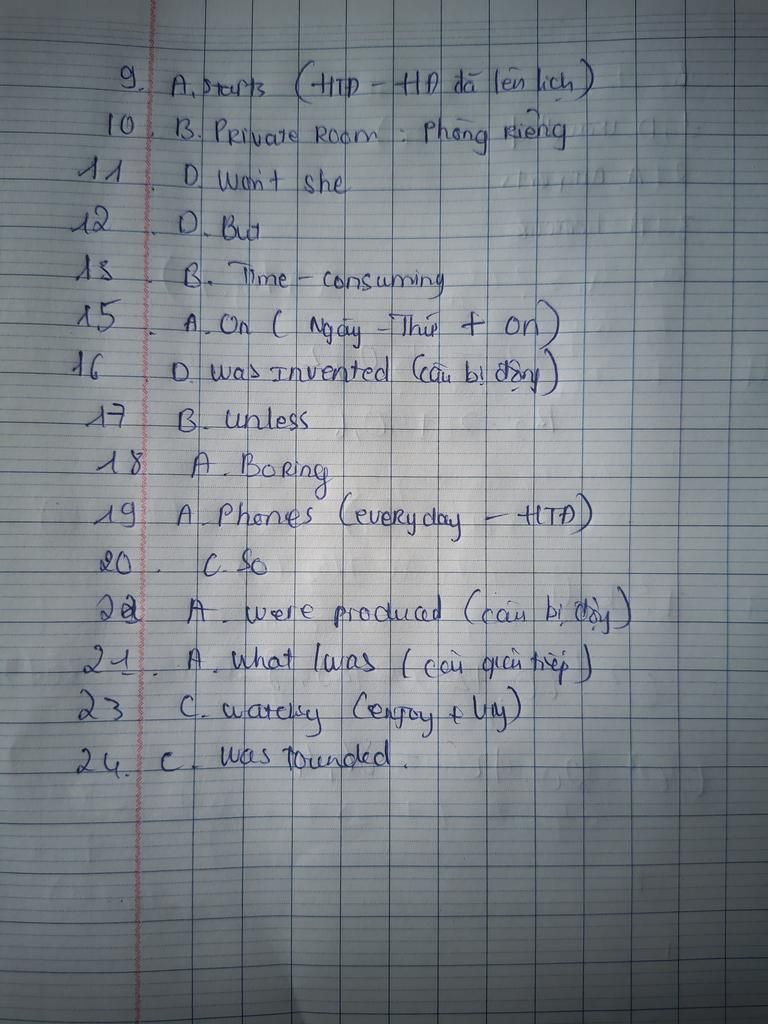 9. A. starts (HTĐ - HĐ đã lên lịch)
10. B. Private Room : Phòng Riêng
11. D. Won't she
12. D. But
13. B. Time - consuming
15. A. On ( Ngày - Thứ + on)
16 D. was invented (câu bị động)
17 B. unless
18 A. Boring
19 A. Phones (everyday - HTĐ)
20. C. So
22 A. were produced (câu bị động)
21. A. what I was (câu gián tiếp)
23 C. watching (enjoy + Ving)
24. C. was founded.